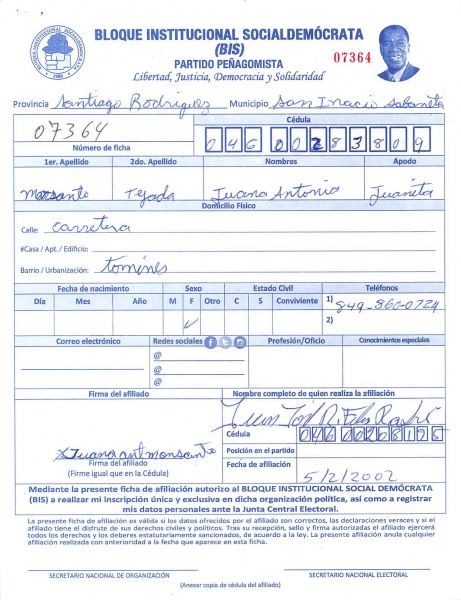 BLOQUE INSTITUCIONAL SOCIALDEMÓCRATA
(BIS)
PARTIDO PEÑAGOMISTA
Libertad, Justicia, Democracia y Solidaridad
07364
Provincia Santiago Rodriguez Municipio San Inacio Sabaneta
07364
Número de ficha
Cédula
046 0028380 9
1er. Apellido 2do. Apellido Nombres Apodo
Tejada Juana Antonia Juanita
Domicilio Físico
Calle: Carretera
#Casa / Apt. / Edificio:
Barrio / Urbanización: tomines
Fecha de nacimiento Sexo Estado Civil Teléfonos
Día Mes Año M F Otro C S Conviviente 1) 849-860-0724
2)
Correo electrónico Redes sociales Profesión/Oficio Conocimientos especiales
@
@
@
Firma del afiliado Nombre completo de quien realiza la afiliación
Cédula
Posición en el partido
Fecha de afiliación
5/2/2002
Firma del afiliado
(Firme igual que en la Cédula)
Mediante la presente ficha de afiliación autorizo al BLOQUE INSTITUCIONAL SOCIAL DEMÓCRATA
(BIS) a realizar mi inscripción única y exclusiva en dicha organización política, así como a registrar
mis datos personales ante la Junta Central Electoral.
La presente ficha de afiliación es válida si los datos ofrecidos por el afiliado son correctos, las declaraciones veraces y si el
afiliado tiene el disfrute de sus derechos civiles y políticos. Tras su recepción, sello y firma autorizados el afiliado ejercerá
todos los derechos y los deberes estatutariamente sancionados, de acuerdo a la ley. La presente afiliación anula cualquier
afiliación realizada con anterioridad a la fecha que aparece en esta ficha.
SECRETARIO NACIONAL DE ORGANIZACIÓN SECRETARIO NACIONAL ELECTORAL
(Anexar copia de cédula del afiliado)